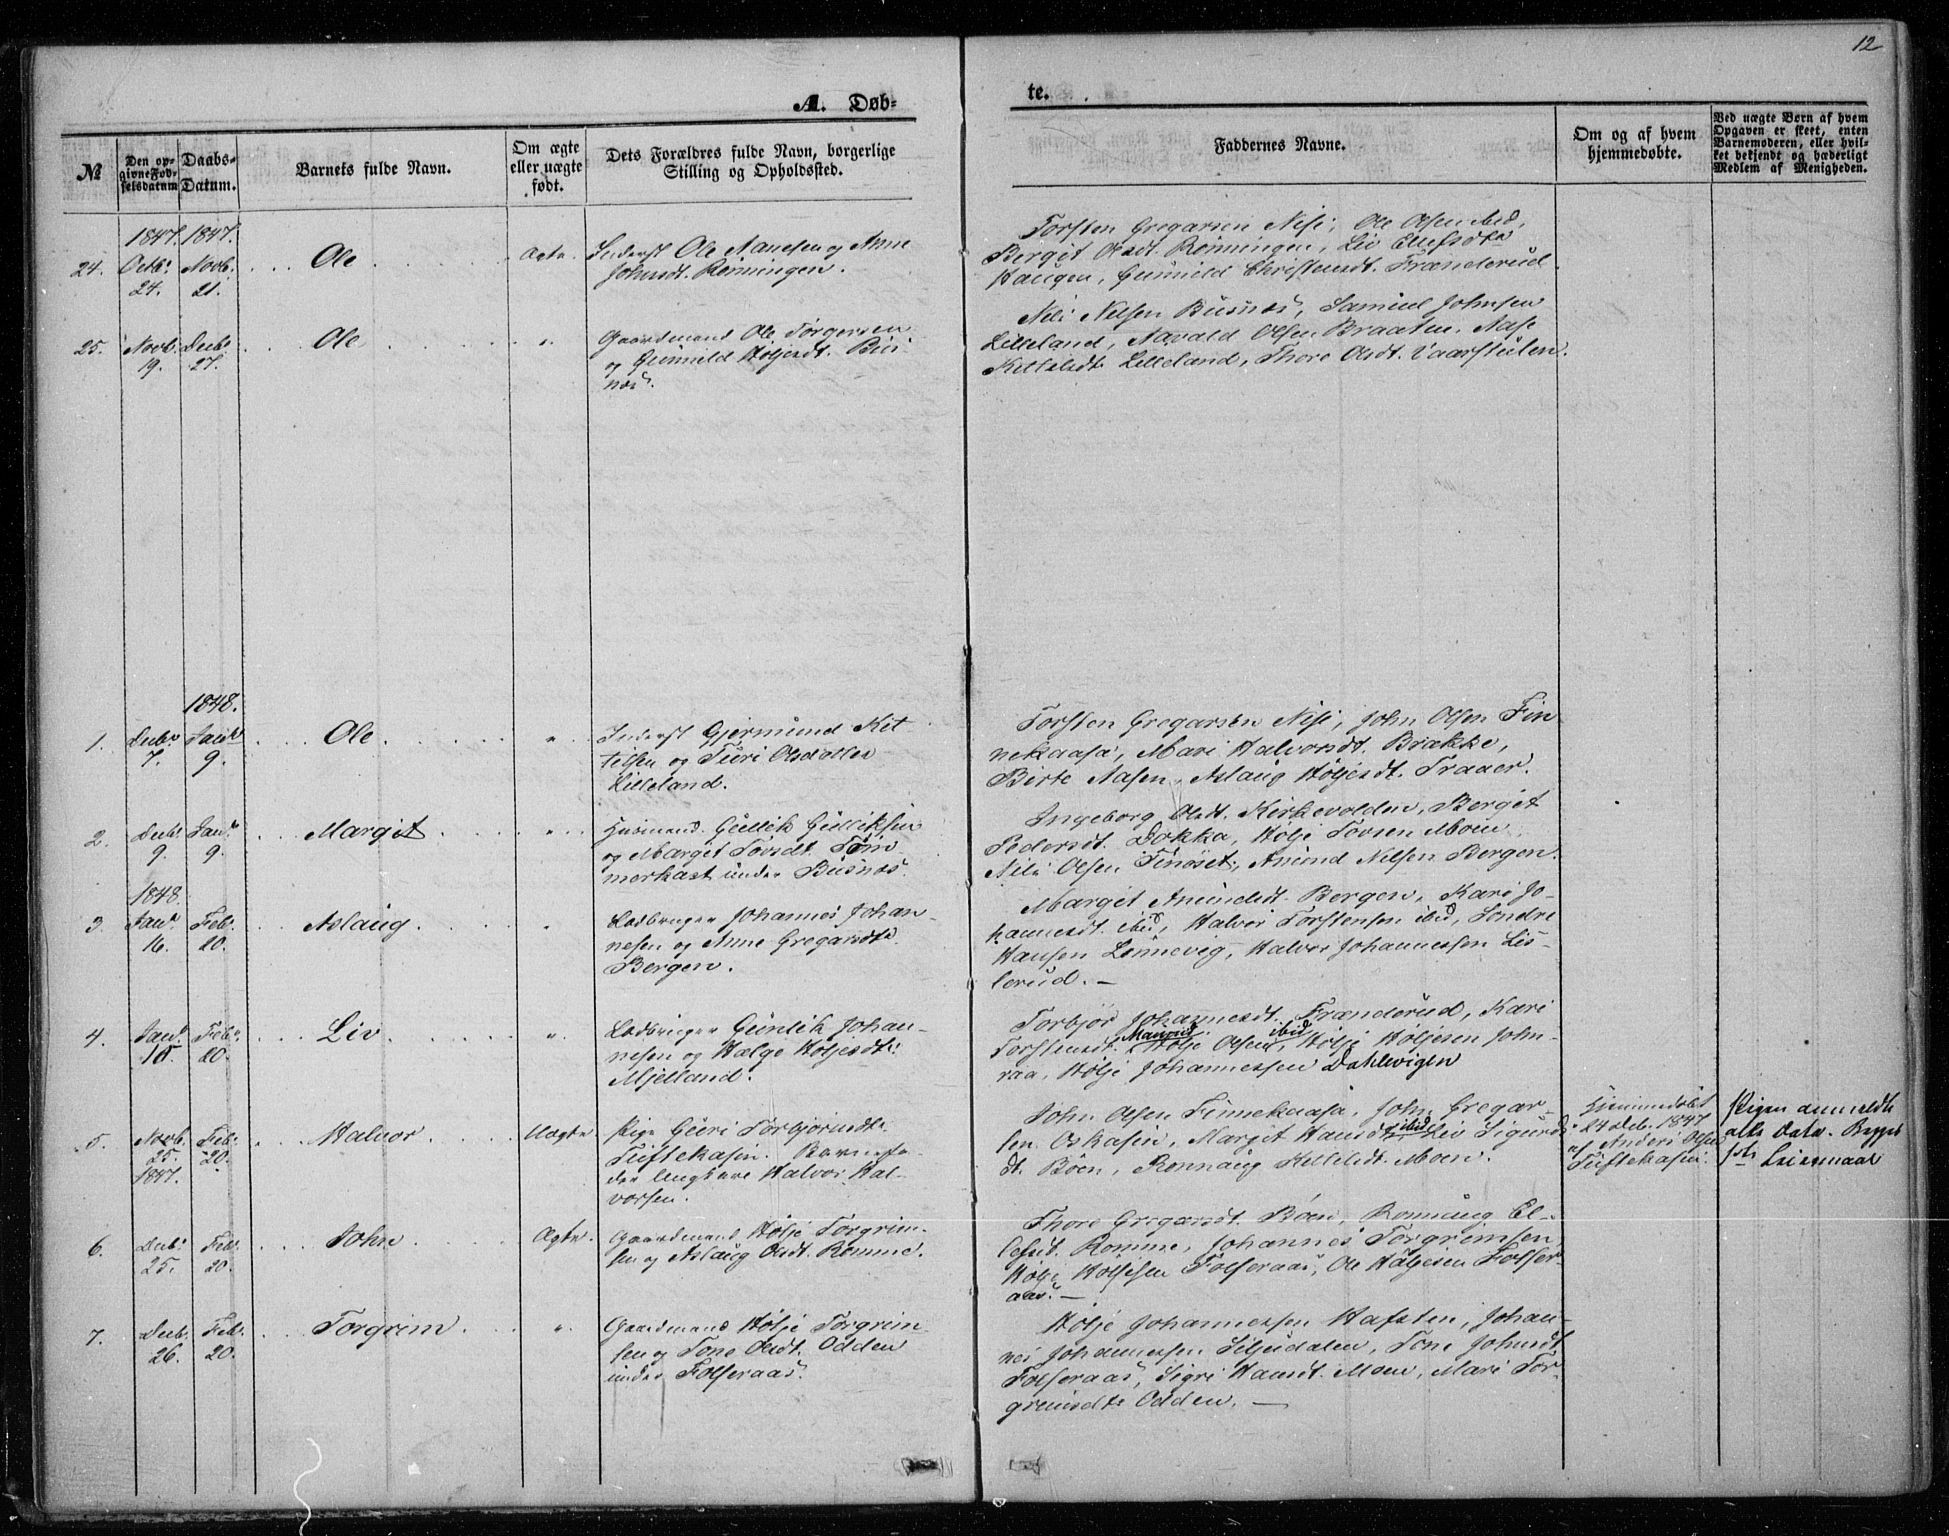 12
A. Døb-
te.
№
Den op-
givne Fød-
selsdatum
Daabs-
Datum.
Barnets fulde Navn.
Om ægte
eller uægte
født.
Dets Forældres fulde Navn, borgerlige
Stilling og Opholdssted.
Faddernes Navne.
Om og af hvem
hjemmedøbte.
Ved uægte Børn af hvem
Opgaven er skeet, enten
Barnemoderen, eller hvil-
ket bekjendt og hæderligt
Medlem af Menigheden.
1847. 1847.
24. Octbr. 24. Novb. 21. Ole Ægte. Inderst Ole Aanesen og Anne
Johnsdt. Rønningen.
Torsten Gregarsen Nisi, Ole Olsen ibid,
Bergit Olsdt. Rønningen, Liv Ellefsdtr
Haugen, Gunnild Christensdt. Frænderud
25. Novb. 19. Decbr. 27. Ole " Gaardmand Ole Torgersen
og Gunnild Høljesdt. Bus-
næs.
Nils Nelsen Busnæs, Samuel Johnsen
Lilleland, Navald Olsen Braaten, Aase
Kittelsdt. Lilleland, Thore Olsdt. Vaarstulen.
1848.
1. Decbr. 7. Janr. 9. Ole " Inderst Gjermund Kit
tilsen og Turi Olsdatter
Lilleland.
Torsten Gregarsen Nisi, John Olsen Fin
nekaasa, Mari Halvorsdt. Brække,
Birte Aasen, Aslaug Høljesdt. Traaer.
2. Decbr. 9. Janr. 9. Margit " Husmand Gullik Gulliksen
og Margit Tovsdt. Tøm
merkast under Busnæs.
Ingeborg Olsdt. Kirkevolden, Bergit
Pedersdt. Dokka, Hølje Tovsen Moen,
Nils Olsen Finøset, Anund Nelsen Bergen.
1848
3. Janr. 16. Febr. 20. Aslaug " Lodbruger Johannes Johan-
nesen og Anne Gregarsdtr
Bergen.
Margit Anundsdt. Bergen, Kari Jo-
hannesdt. ibid, Halvor Torstensen ibid, Sondre
Hansen Lønnevig, Halvor Johannessen Lis-
lerud. —
4. Janr. 10. Febr. 20. Liv " Lodbruger Gunlik Johan-
nesen og Hælge Høljesdtr
Mjelland.
Torbjør Johannesdt. Frænderud, Kari
Torstensdt. Hølje Olsen ibid, Hølje Høljesen John-
raa, Hølje Johannessen Dahlevigen
5. Novb. 25. 1847. Febr. 20. Halvor Uægte Pige Guri Torbjørnsdtr
Tuftekasin. Barnefa-
der Ungkarl Halvor Hal-
vorsen.
John Olsen Finnekaasa, John Gregar-
sen Oskasin, Margit Hansdt. ibid, Liv Sigurds
dt. Bøen, Rønnaug Kittelsdt. Moen.
Hjemmedøbt
24 Deb. 1847
af Anders Olsen
Tuftekasin.
Pigen anmeldt
alle Data. Begges
1ste Leiermaal
6. Decbr. 25. Febr. 20. John Ægte. Gaardmand Hølje Torgrim-
sen og Aslaug Olsdt. Romme.
Thore Gregarsdt. Bøen, Rønnaug El-
lefsdt. Romme, Johannes Torgrimsen,
Hølje Høljesen Folseraas, Ole Høljesen Folser-
aas. —
7. Decb. 26. Febr. 20. Torgrim " Gaardmand Hølje Torgrim-
sen og Tone Olsdt. Odden
under Folseraas.
Hølje Johannessen Hafsten, Johan-
nes Johannessen Siljudalen, Tone Johnsdt
Folseraas, Sigri Hansdt. Moen, Mari Tor-
grimsdtr Odden. —